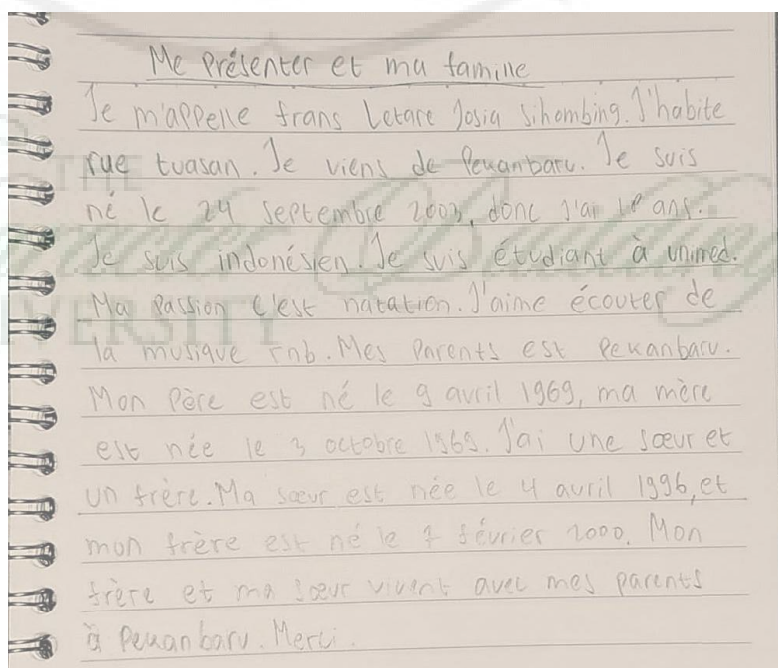 Me Présenter et ma famille
Je m'appelle frans Letare Josia Sihombing. J'habite
rue tuasan. Je viens de Pekanbaru. Je suis
né le 24 Septembre 2003, donc j'ai ans.
Je suis indonésien. Je suis étudiant à unimed.
Ma Passion c'est natation. J'aime écouter de
la musique rnb. Mes Parents est Pekanbaru.
Mon Père est né le 9 avril 1969, ma mère
est née le 3 octobre 1969. J'ai une sœur et
un frère. Ma sœur est née le 4 avril 1996, et
mon frère est né le 7 février 2000. Mon
frère et ma sœur vivent avec mes parents
à Pekanbaru. Merci.
THE
UNIVERSITY